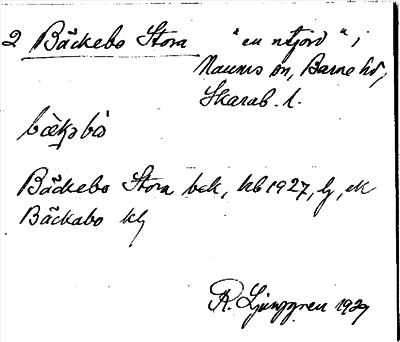 2 Bäckebo Stora "en utjord" i
Naums sn, Barne hd,
Skarab. l.
Bäckebo Stora bek, kb 1927, lj, ek
Bäckabo klj
R. Ljunggren 1929